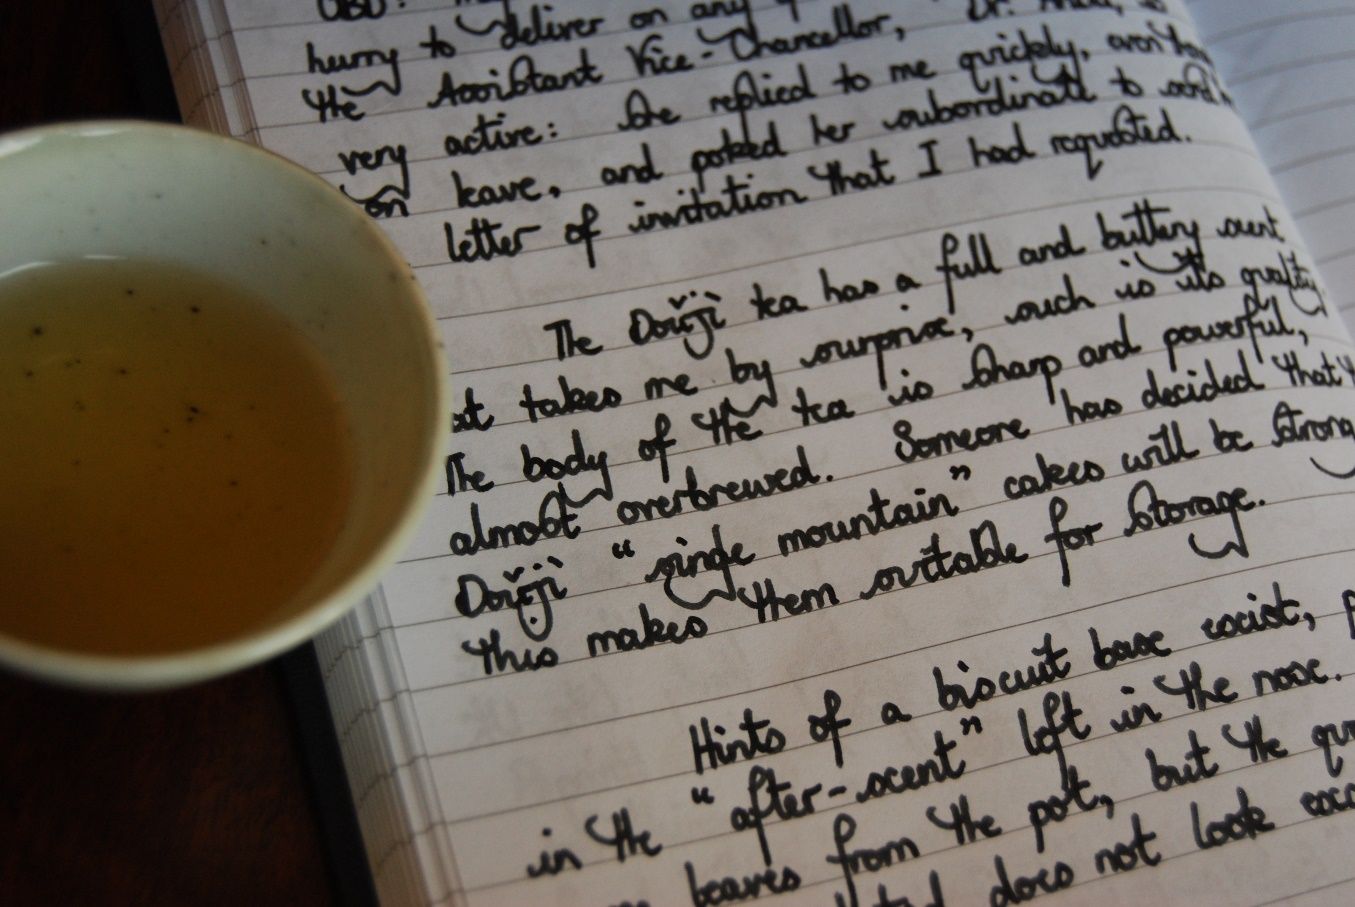 hurry to deliver on any
the Assistant Vice-Chancellor, Dr.
very active: She replied to me quickly, even
on leave, and poked her subordinate to send
letter of invitation that I had requested.
The Douji tea has a full and buttery scent
takes me by surprise, such is its quality.
The body of the tea is sharp and powerful,
almost overbrewed. Someone has decided that
Douji "single mountain" cakes will be strong
This makes them suitable for storage.
Hints of a biscuit base exist,
in the "after-scent" left in the nose.
leaves from the pot, but the
does not look